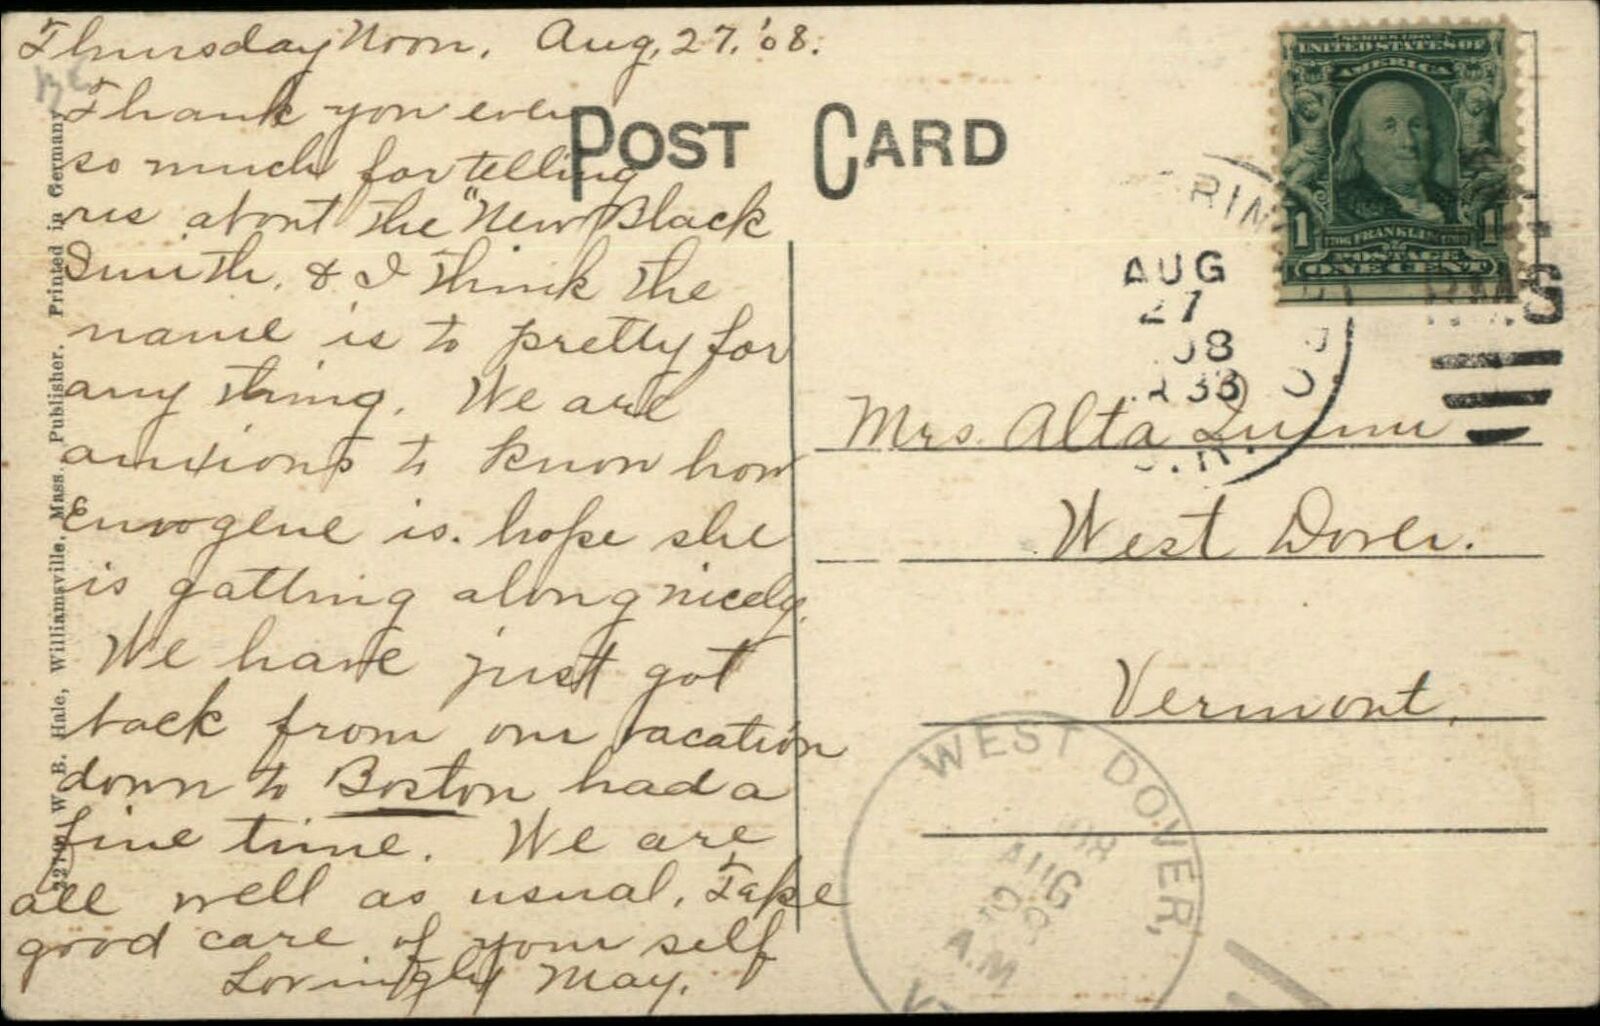 Thursday Noon. Aug. 27. '08.
Thank you ever
so much for telling
us about the "New Black
Smith. & I think the
name is to pretty for
any thing. We are
anxious to know how
Emogene is. hope she
is gatting along nicely.
We have just got
back from our vacation
down to Boston had a
fine time. We are
all well as usual. Take
good care of your self
Lovingly May.
W. B. Hale, Williamsville, Mass. Publisher. Printed in Germany
POST CARD
SERIES 1902
UNITED STATES OF
AMERICA
1 1706 FRANKLIN 1790 1
POSTAGE
ONE CENT
AUG
27
08
Mrs. Alta Quinn
West Dover.
Vermont.
WEST DOVER,
AUG
A.M
VT